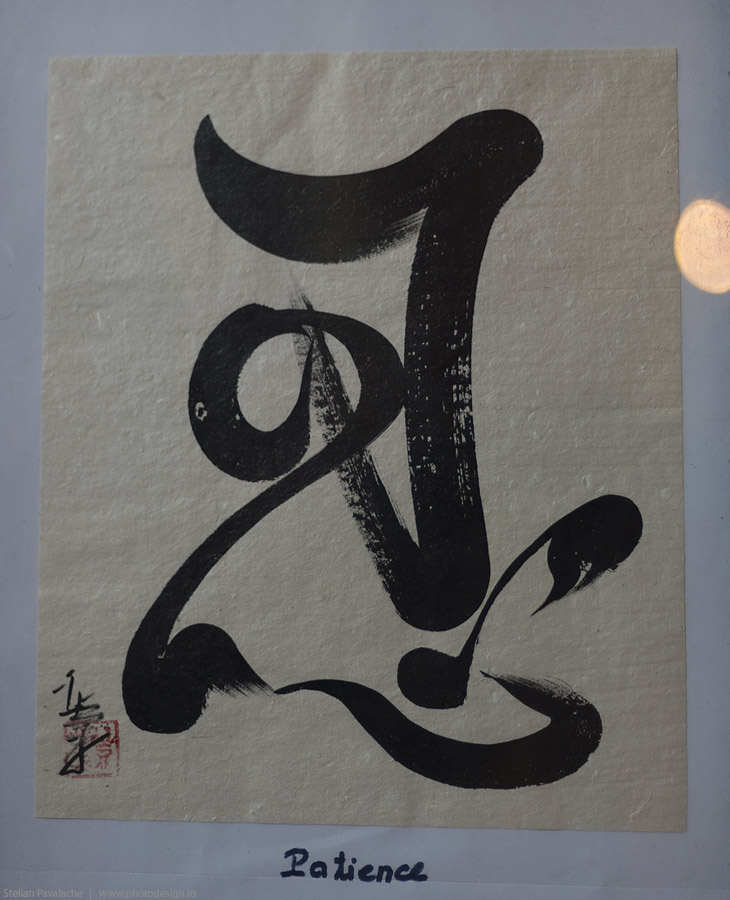 忍
Patience
Stelian Pavalache | www.photodesign.ro